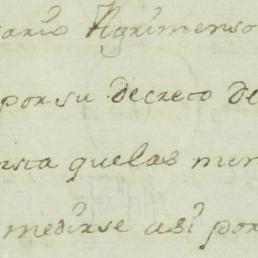 ario Agrimenso
por su decreto de
rsia que las mer
medirse asi por